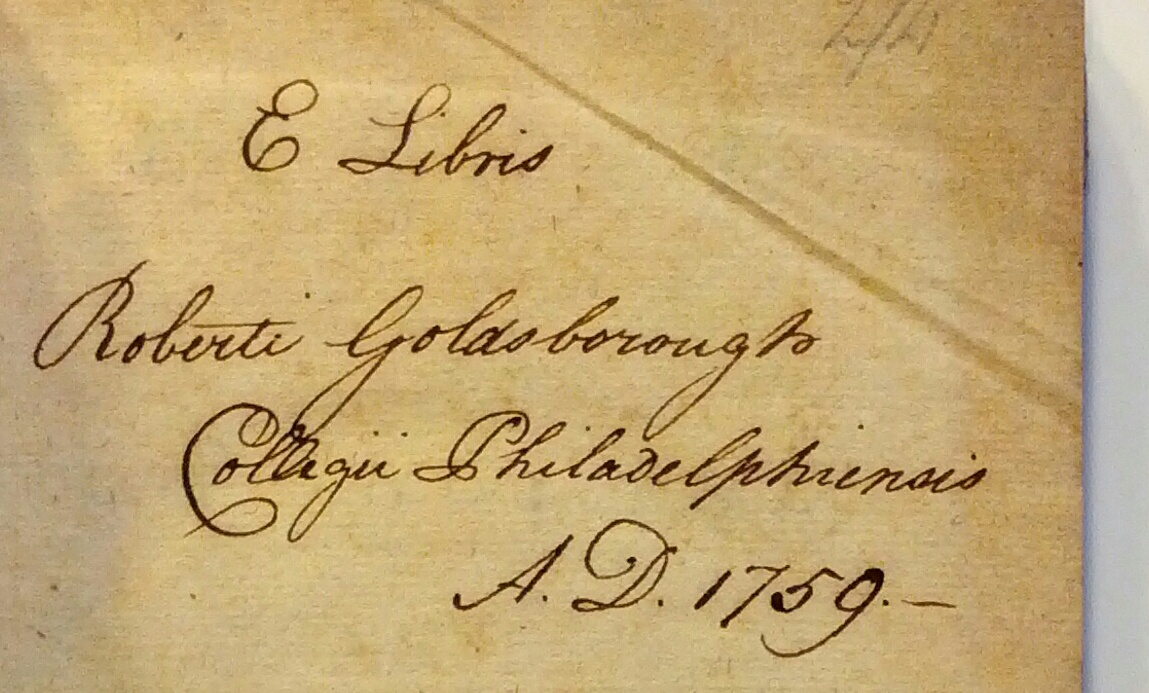 E Libris
Roberti Goldsborough
Collegii Philadelphiensis
A. D. 1759.—